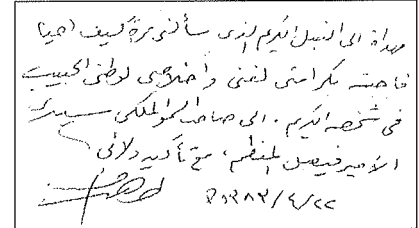 مهداة الى النبيل الكريم الذى سألنى مرة كيف احيا
فاجبته بكرامتى لفنى واخلاصى لوطنى الحبيب
فى شخصه الكريم . الى صاحب السمو الملكى سيدى
الامير فيصل المعظم ، مع تأكيد ولائى
١٣٨٣/٤/٢٢